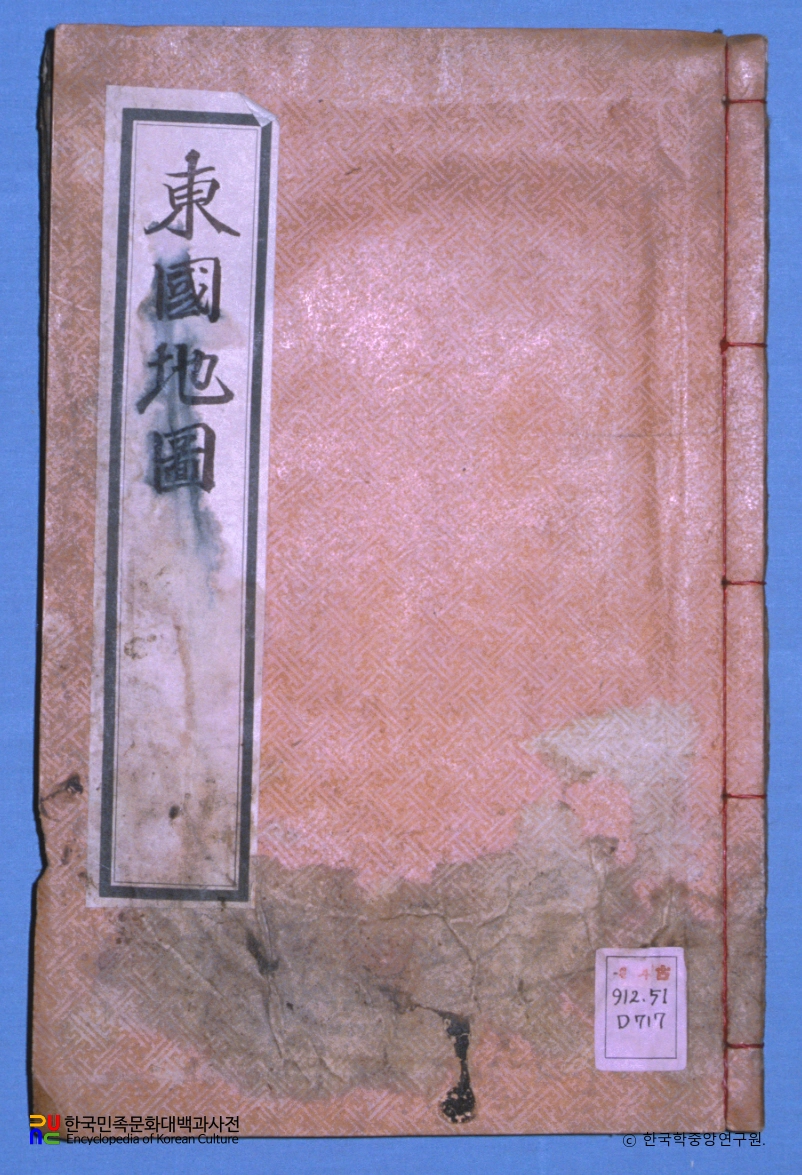 東國地圖
912.51
D717
한국민족문화대백과사전
Encyclopedia of Korean Culture
© 한국학중앙연구원.